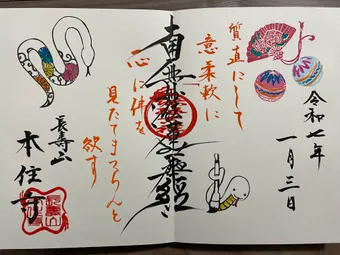 令和七年
一月三日
質直にして
意柔軟に
南無妙法蓮華経
一心に仏を
見たてまつらんと
欲す
長寿山
本住寺